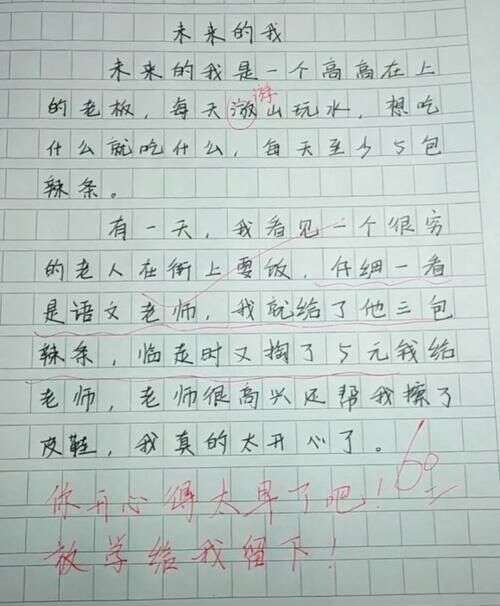 未来的我
未来的我是一个高高在上
游
的老板，每天山玩水，想吃
什么就吃什么，每天至少5包
辣条。
有一天，我看见一个很穷
的老人在街上要饭，仔细一看
是语文老师，我就给了他三包
辣条，临走时又掏了5元我给
老师，老师很高兴还帮我擦了
皮鞋，我真的太开心了。
60
你开心得太早了吧！
放学给我留下！